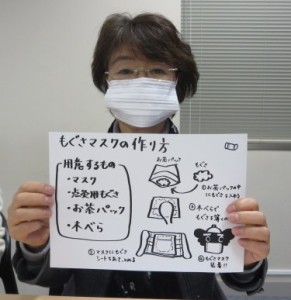 もぐさマスクの作り方
用意するもの
・マスク
・点灸用もぐさ
・お茶パック
・木べら
お茶パック
もぐさ
①お茶パックの中
にもぐさを入れる
②木べらで
もぐさを薄くのばす
③マスクにもぐさ
シートをあて、入れる
④もぐさマスク
装着!!